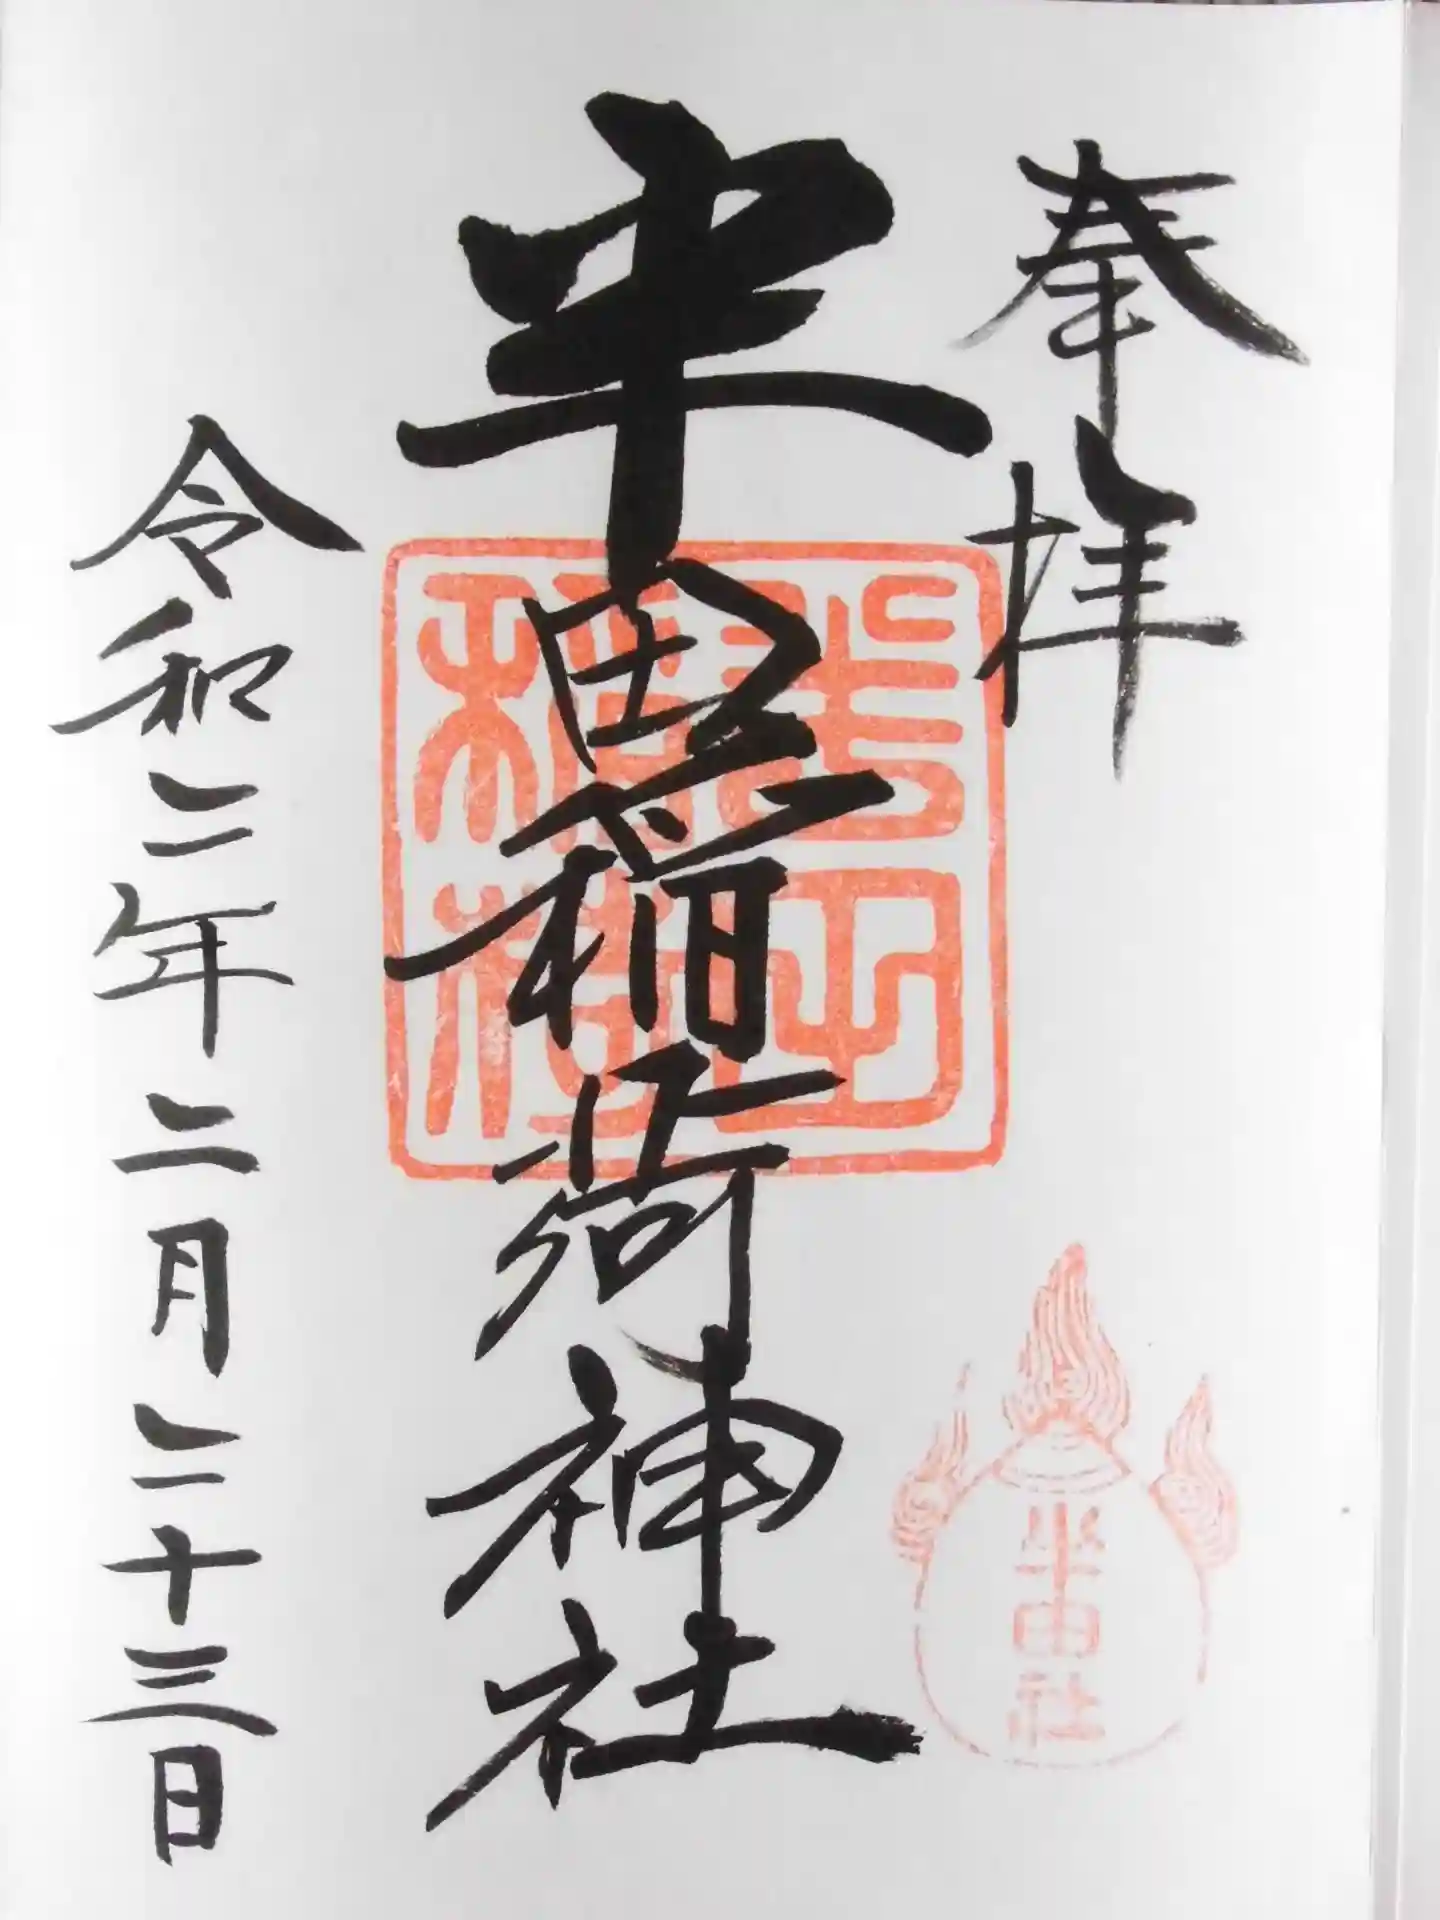 奉拝
半田稲荷神社
半田稲荷
半田社
令和二年二月二十三日